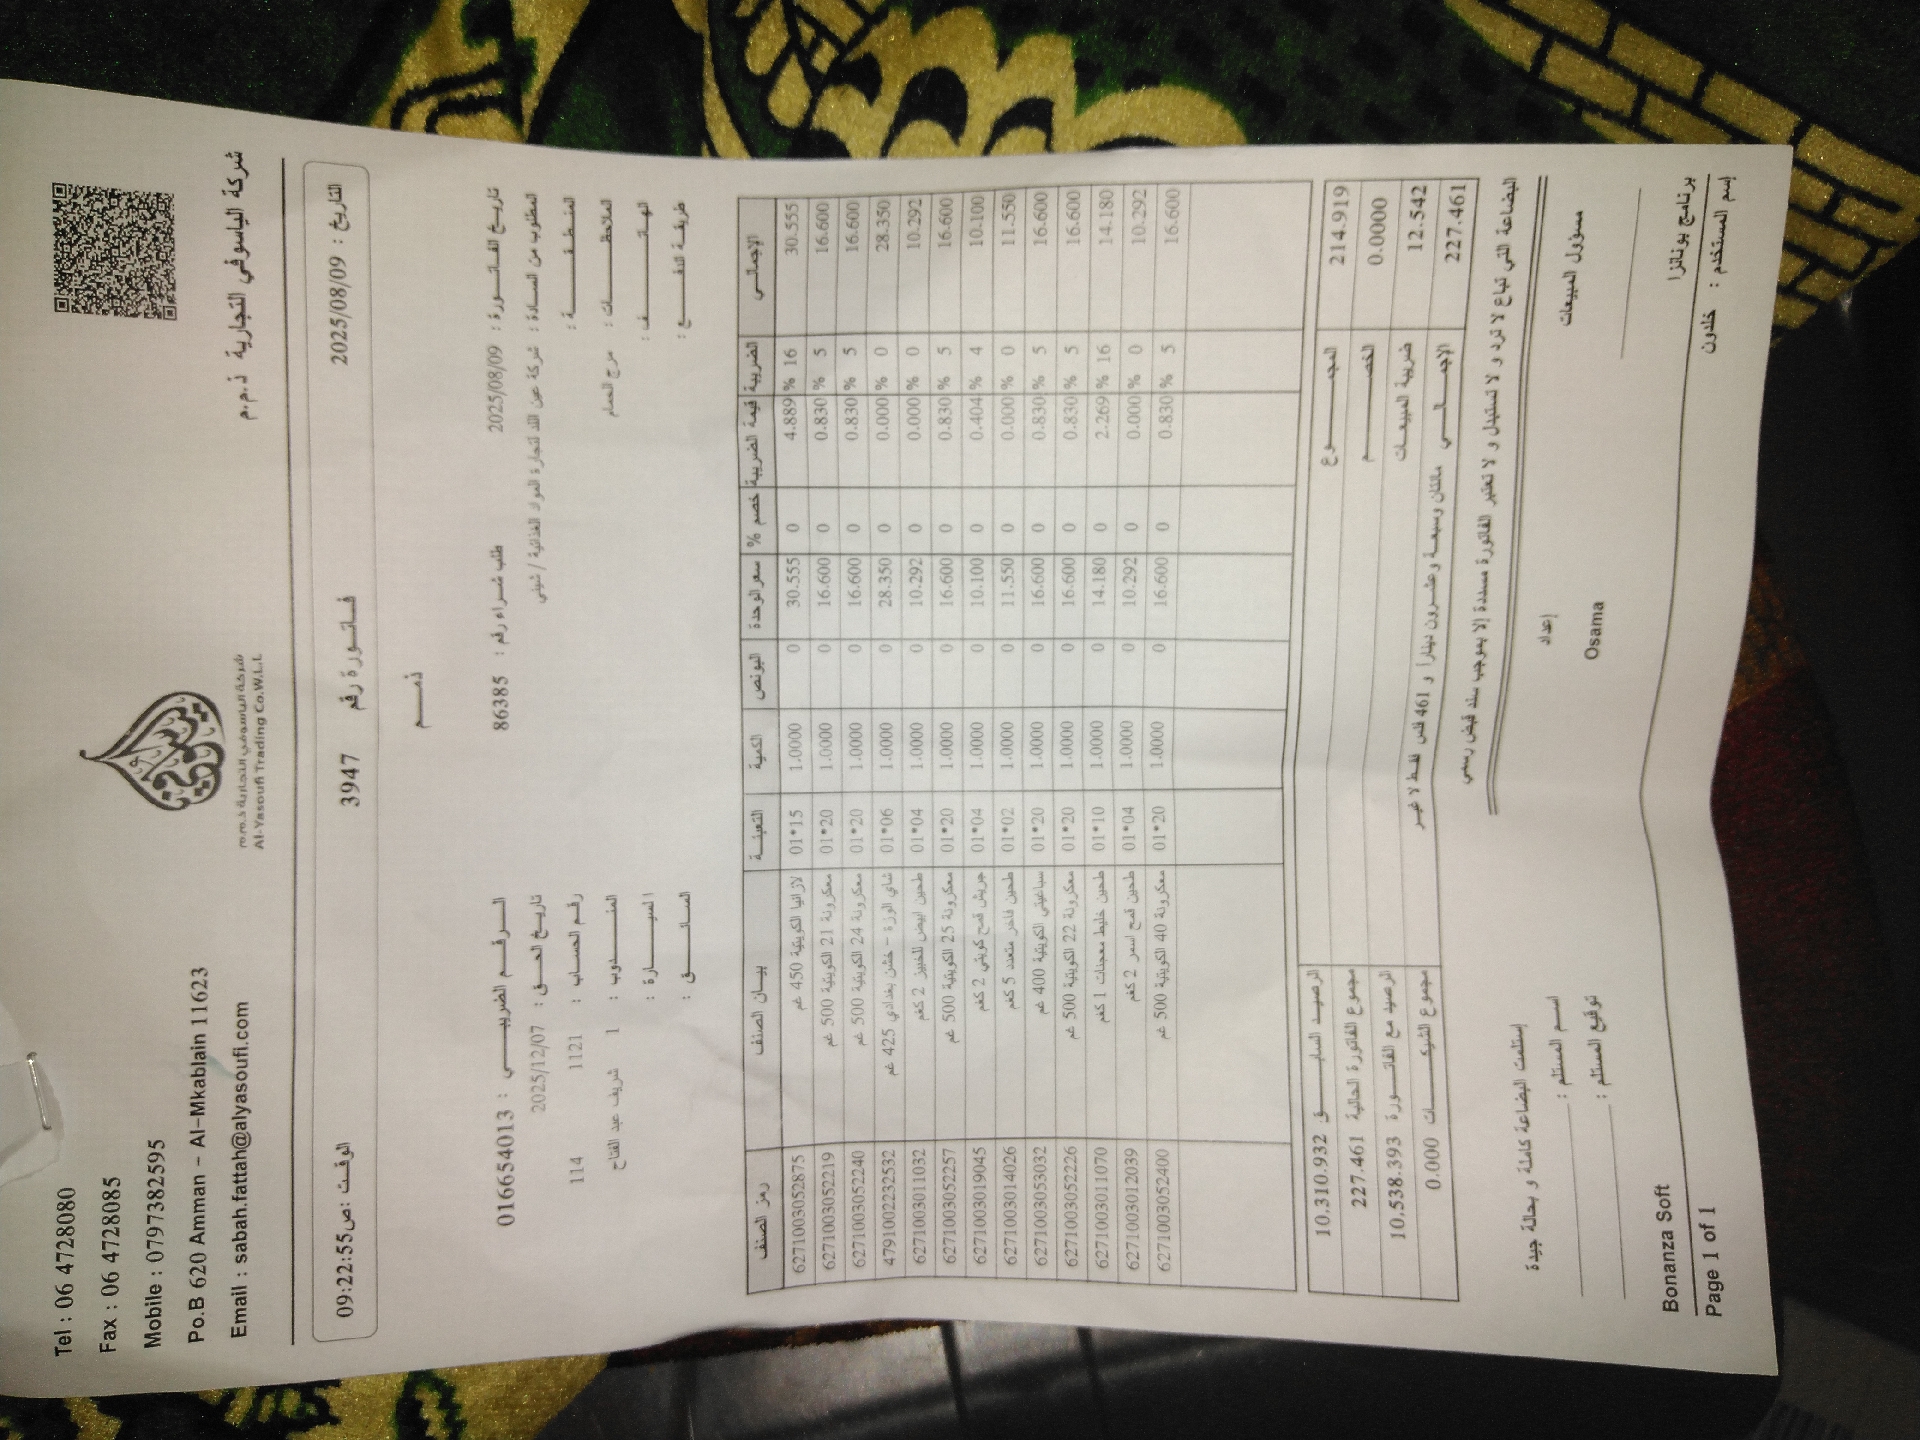 Tel : 06 4728080
Fax : 06 4728085
Mobile : 0797382595
Po.B 620 Amman - Al-Mkablain 11623
Email : sabah.fattah@alyasoufi.com
شركة الياسوفي التجارية ذ.م.م
Al-Yasoufi Trading Co.W.L.L
شركة الياسوفي التجارية ذ.م.م
التاريخ : 2025/08/09
فاتورة رقم 3947
الوقت :ص09:22:55
ذمم
تاريخ الفاتورة : 2025/08/09 طلب شراء رقم : 86385 الرقم الضريبي : 016654013
المطلوب من السادة : شركة عين اللد لتجارة المواد الغذائية / شيني تاريخ الحق : 2025/12/07
المنطقة : رقم الحساب : 1121 114
الملاحظات : مرج الحمام المندوب : 1 شريف عبد الفتاح
الهاتف : السيارة :
طريقة الدفع : السائق :
رمز الصنف بيان الصنف التعبئة الكمية البونص سعر الوحدة خصم % قيمة الضريبة الضريبة الإجمالي
6271003052875 لازانيا الكويتية 450 غم 01*15 1.0000 0 30.555 0 4.889 % 16 30.555
6271003052219 معكرونة 21 الكويتية 500 غم 01*20 1.0000 0 16.600 0 0.830 % 5 16.600
6271003052240 معكرونة 24 الكويتية 500 غم 01*20 1.0000 0 16.600 0 0.830 % 5 16.600
4791002232532 شاي الوزة - خشن بغدادي 425 غم 01*06 1.0000 0 28.350 0 0.000 % 0 28.350
6271003011032 طحين ابيض للخبيز 2 كغم 01*04 1.0000 0 10.292 0 0.000 % 0 10.292
6271003052257 معكرونة 25 الكويتية 500 غم 01*20 1.0000 0 16.600 0 0.830 % 5 16.600
6271003019045 جريش قمح كويتي 2 كغم 01*04 1.0000 0 10.100 0 0.404 % 4 10.100
6271003014026 طحين فاخر متعدد 5 كغم 01*02 1.0000 0 11.550 0 0.000 % 0 11.550
6271003053032 سباغيتي الكويتية 400 غم 01*20 1.0000 0 16.600 0 0.830 % 5 16.600
6271003052226 معكرونة 22 الكويتية 500 غم 01*20 1.0000 0 16.600 0 0.830 % 5 16.600
6271003011070 طحين خليط معجنات 1 كغم 01*10 1.0000 0 14.180 0 2.269 % 16 14.180
6271003012039 طحين قمح اسمر 2 كغم 01*04 1.0000 0 10.292 0 0.000 % 0 10.292
6271003052400 معكرونة 40 الكويتية 500 غم 01*20 1.0000 0 16.600 0 0.830 % 5 16.600
الرصيد السابق 10,310.932 المجموع 214.919
مجموع الفاتورة الحالية 227.461 الخصم 0.0000
الرصيد مع الفاتورة 10,538.393 ضريبة المبيعات 12.542
مجموع الشيكات 0.000 مائتان وسبعة وعشرون دينارا و 461 فلس فقط لا غير الإجمالي 227.461
البضاعة التي تباع لا ترد و لا تستبدل و لا تعتبر الفاتورة مسددة إلا بموجب سند قبض رسمي
مسؤول المبيعات إعداد إستلمت البضاعة كاملة و بحالة جيدة
Osama اسم المستلم :
توقيع المستلم :
برنامج بونانزا Bonanza Soft
إسم المستخدم : خلدون Page 1 of 1